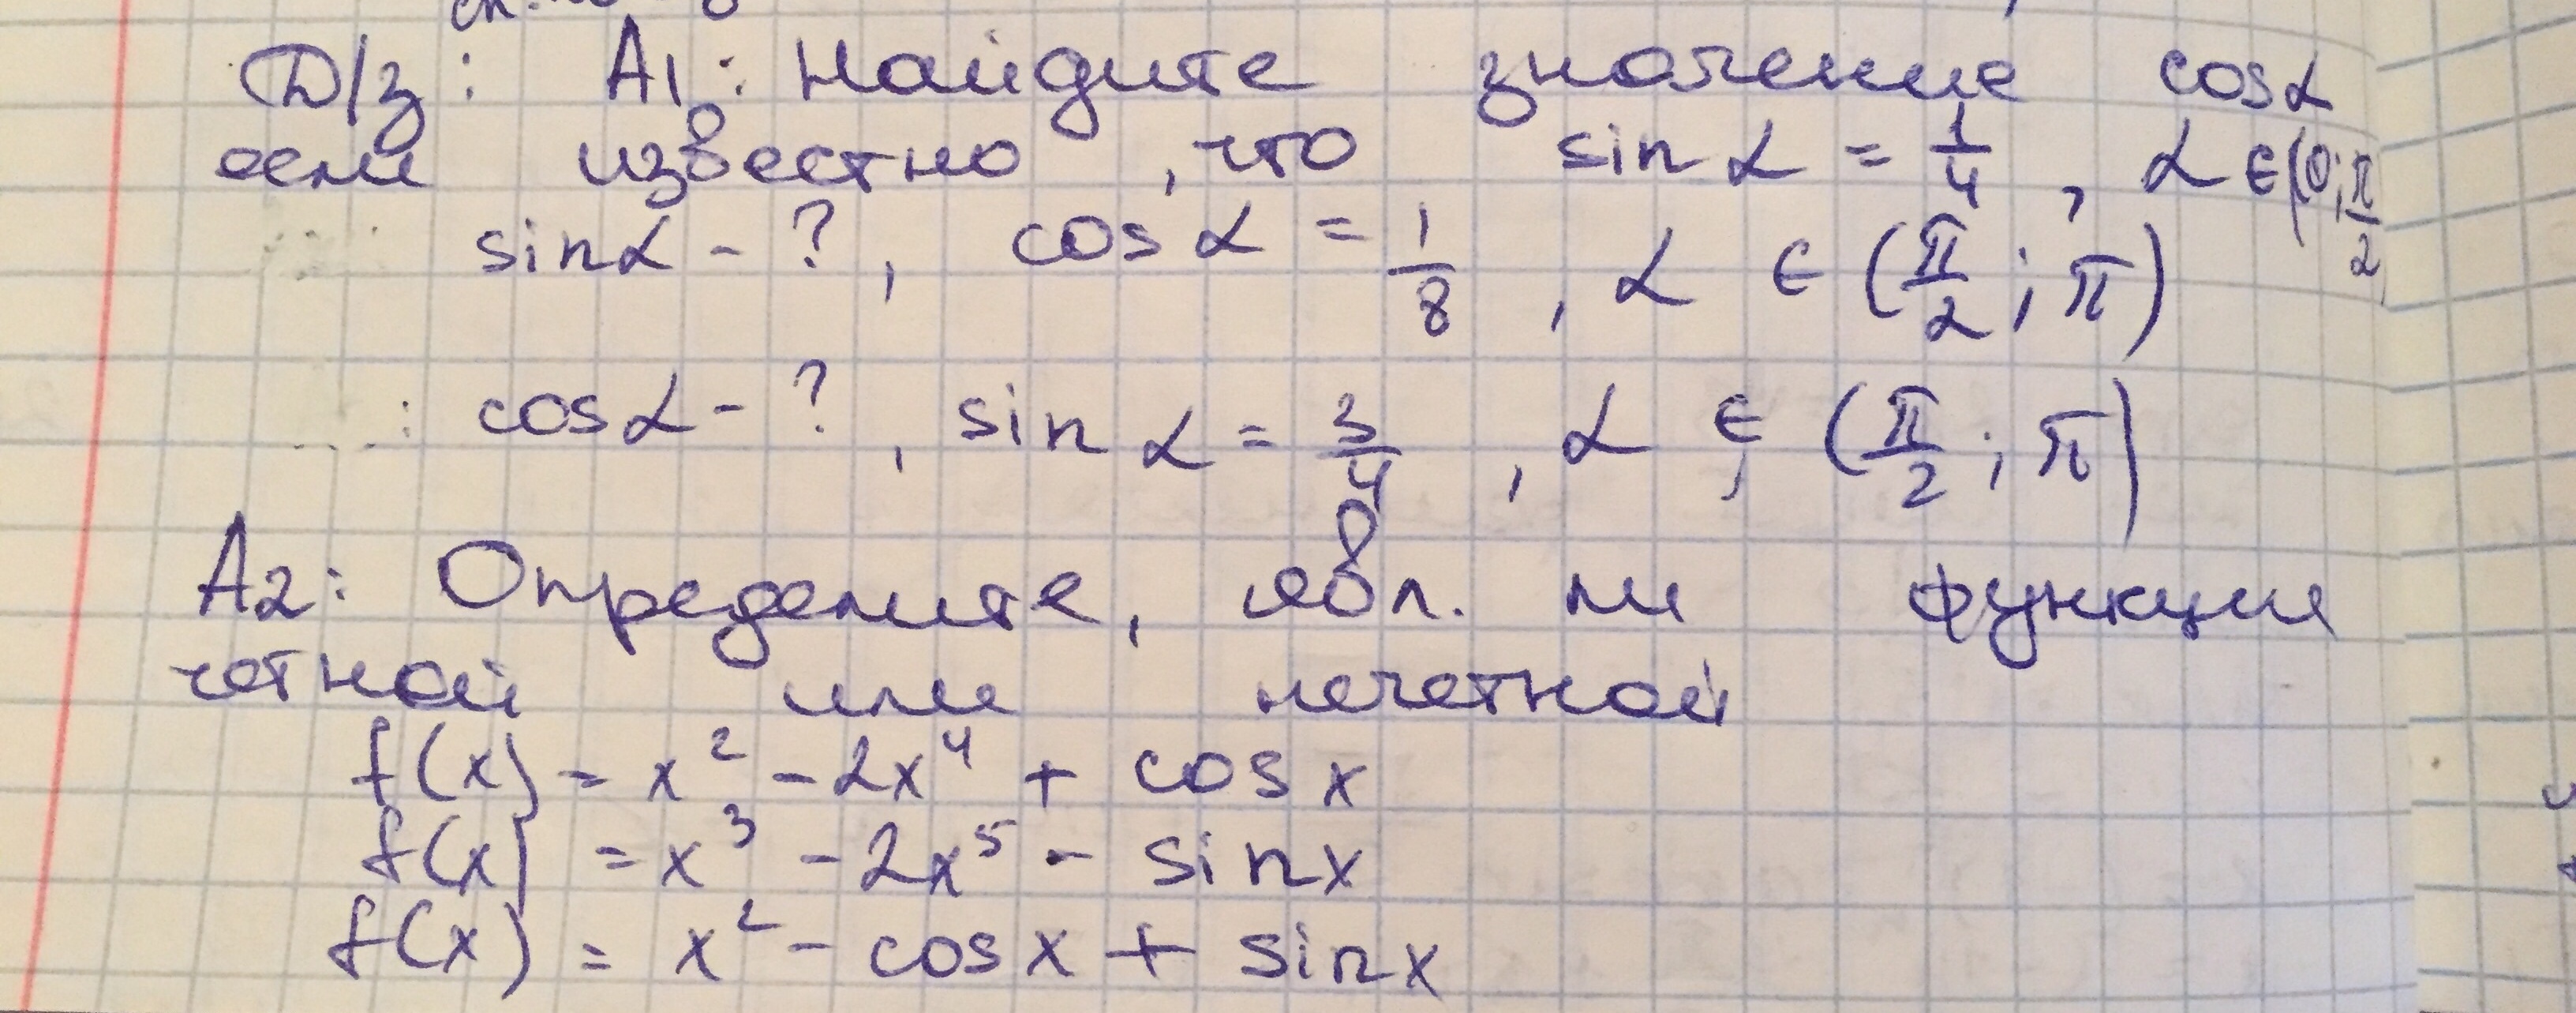 Д/з: А1: Найдите значение cosα
если известно, что sin α = 1/4, α ∈ (0; π/2
sinα - ?, cos α = 1/8, α ∈ (π/2; π)
: cosα - ?, sin α = 3/4, α ∈ (π/2; π)
А2: Определите, явл. ли функции
четной или нечетной
f(x) = x² - 2x⁴ + cos x
f(x) = x³ - 2x⁵ - sinx
f(x) = x² - cosx + sinx